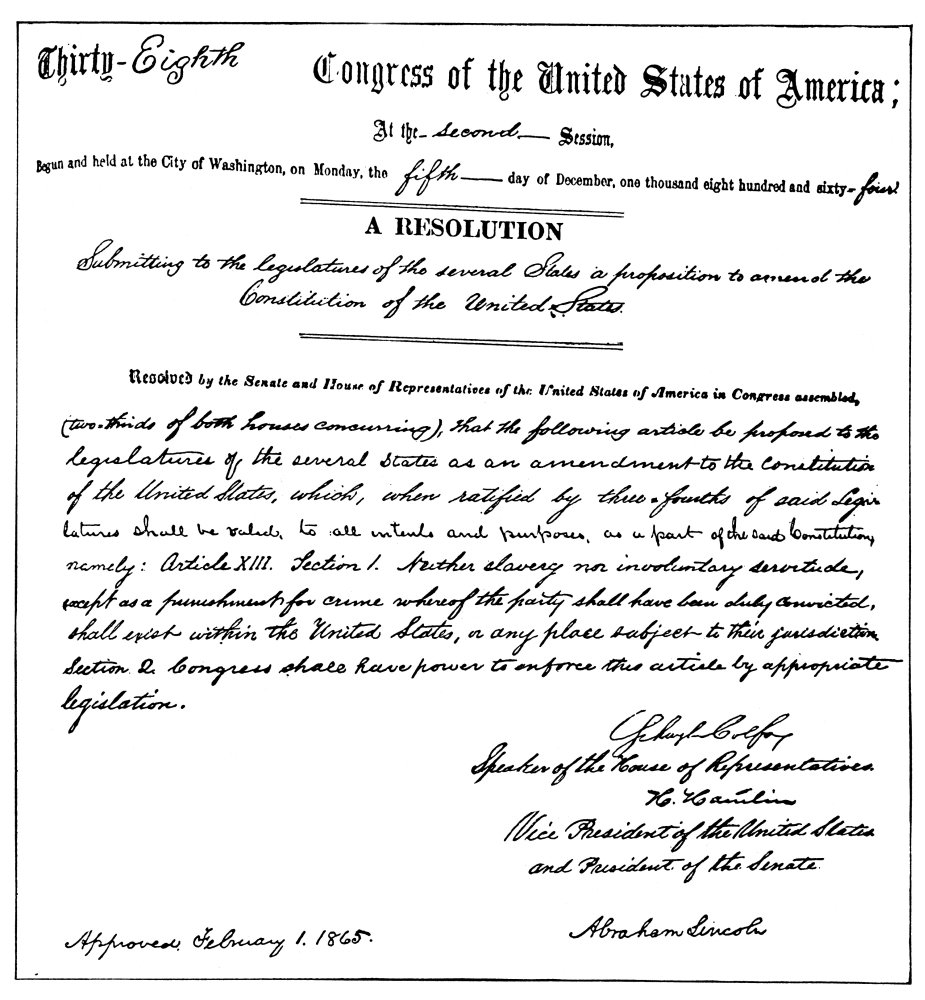 Thirty-Eighth Congress of the United States of America;
At the second Session,
Begun and held at the City of Washington, on Monday, the fifth day of December, one thousand eight hundred and sixty-four.
A RESOLUTION
Submitting to the legislatures of the several States a proposition to amend the
Constitution of the United States.
Resolved by the Senate and House of Representatives of the United States of America in Congress assembled,
(two-thirds of both houses concurring), that the following article be proposed to the
legislatures of the several States as an amendment to the Constitution
of the United States, which, when ratified by three-fourths of said Legis-
latures shall be valid, to all intents and purposes, as a part of the said Constitution,
namely: Article XIII. Section 1. Neither slavery nor involuntary servitude,
except as a punishment for crime whereof the party shall have been duly convicted,
shall exist within the United States, or any place subject to their jurisdiction.
Section 2. Congress shall have power to enforce this article by appropriate
legislation.
Schuyler Colfax
Speaker of the House of Representatives.
H. Hamlin
Vice President of the United States
and President of the Senate.
Approved, February 1. 1865.
Abraham Lincoln